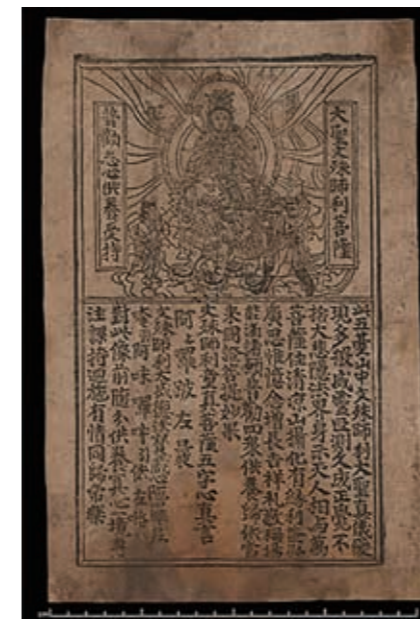 大聖文殊師利菩薩
普勸志心供養受持
此五臺山中文殊師利大聖真儀變
現多般威靈叵測久成正覺不
捨大悲隱法界身示天人相与萬
菩薩住清涼山攝化有緣利益弘
廣思惟憶念增長吉祥礼敬稱揚
能滿諸願普勸四眾供養歸依當
來同證菩提妙果
文殊師利童真菩薩五字心真言
阿上囉跛左曩
文殊師利大威德法寶藏心陀羅尼
唵引阿味囉吽引佉左
對此像前隨分供養冥心一境專
注課持迴施有情同歸常樂